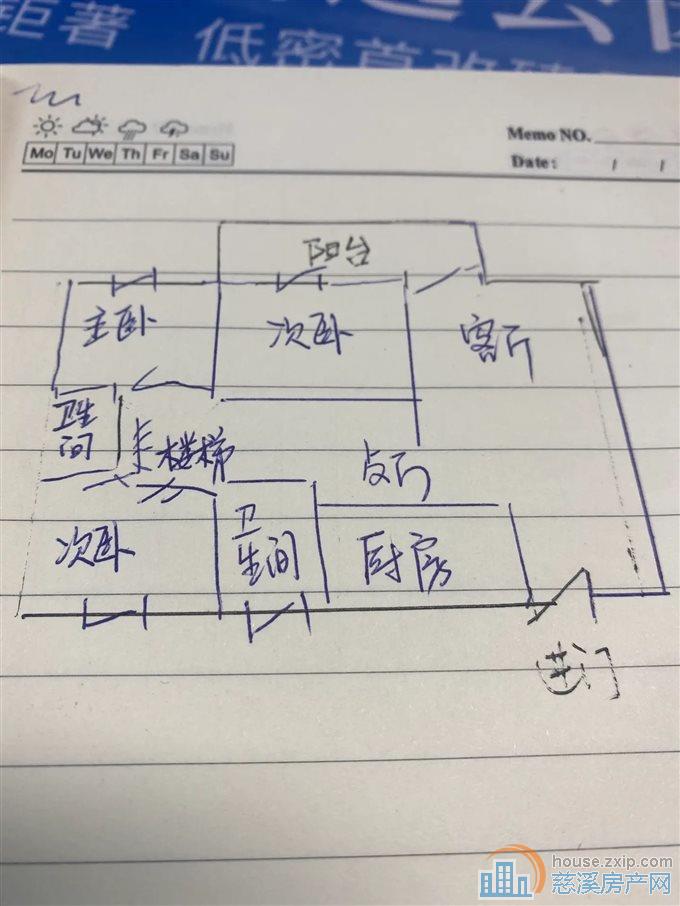 距著 低密首改
Memo NO.
Mo Tu We Th Fr Sa Su
Date: / /
阳台
主卧
次卧
客厅
卫生间
楼梯
次卧
卫生间
厨房
进门
house.zxip.com
慈溪房产网